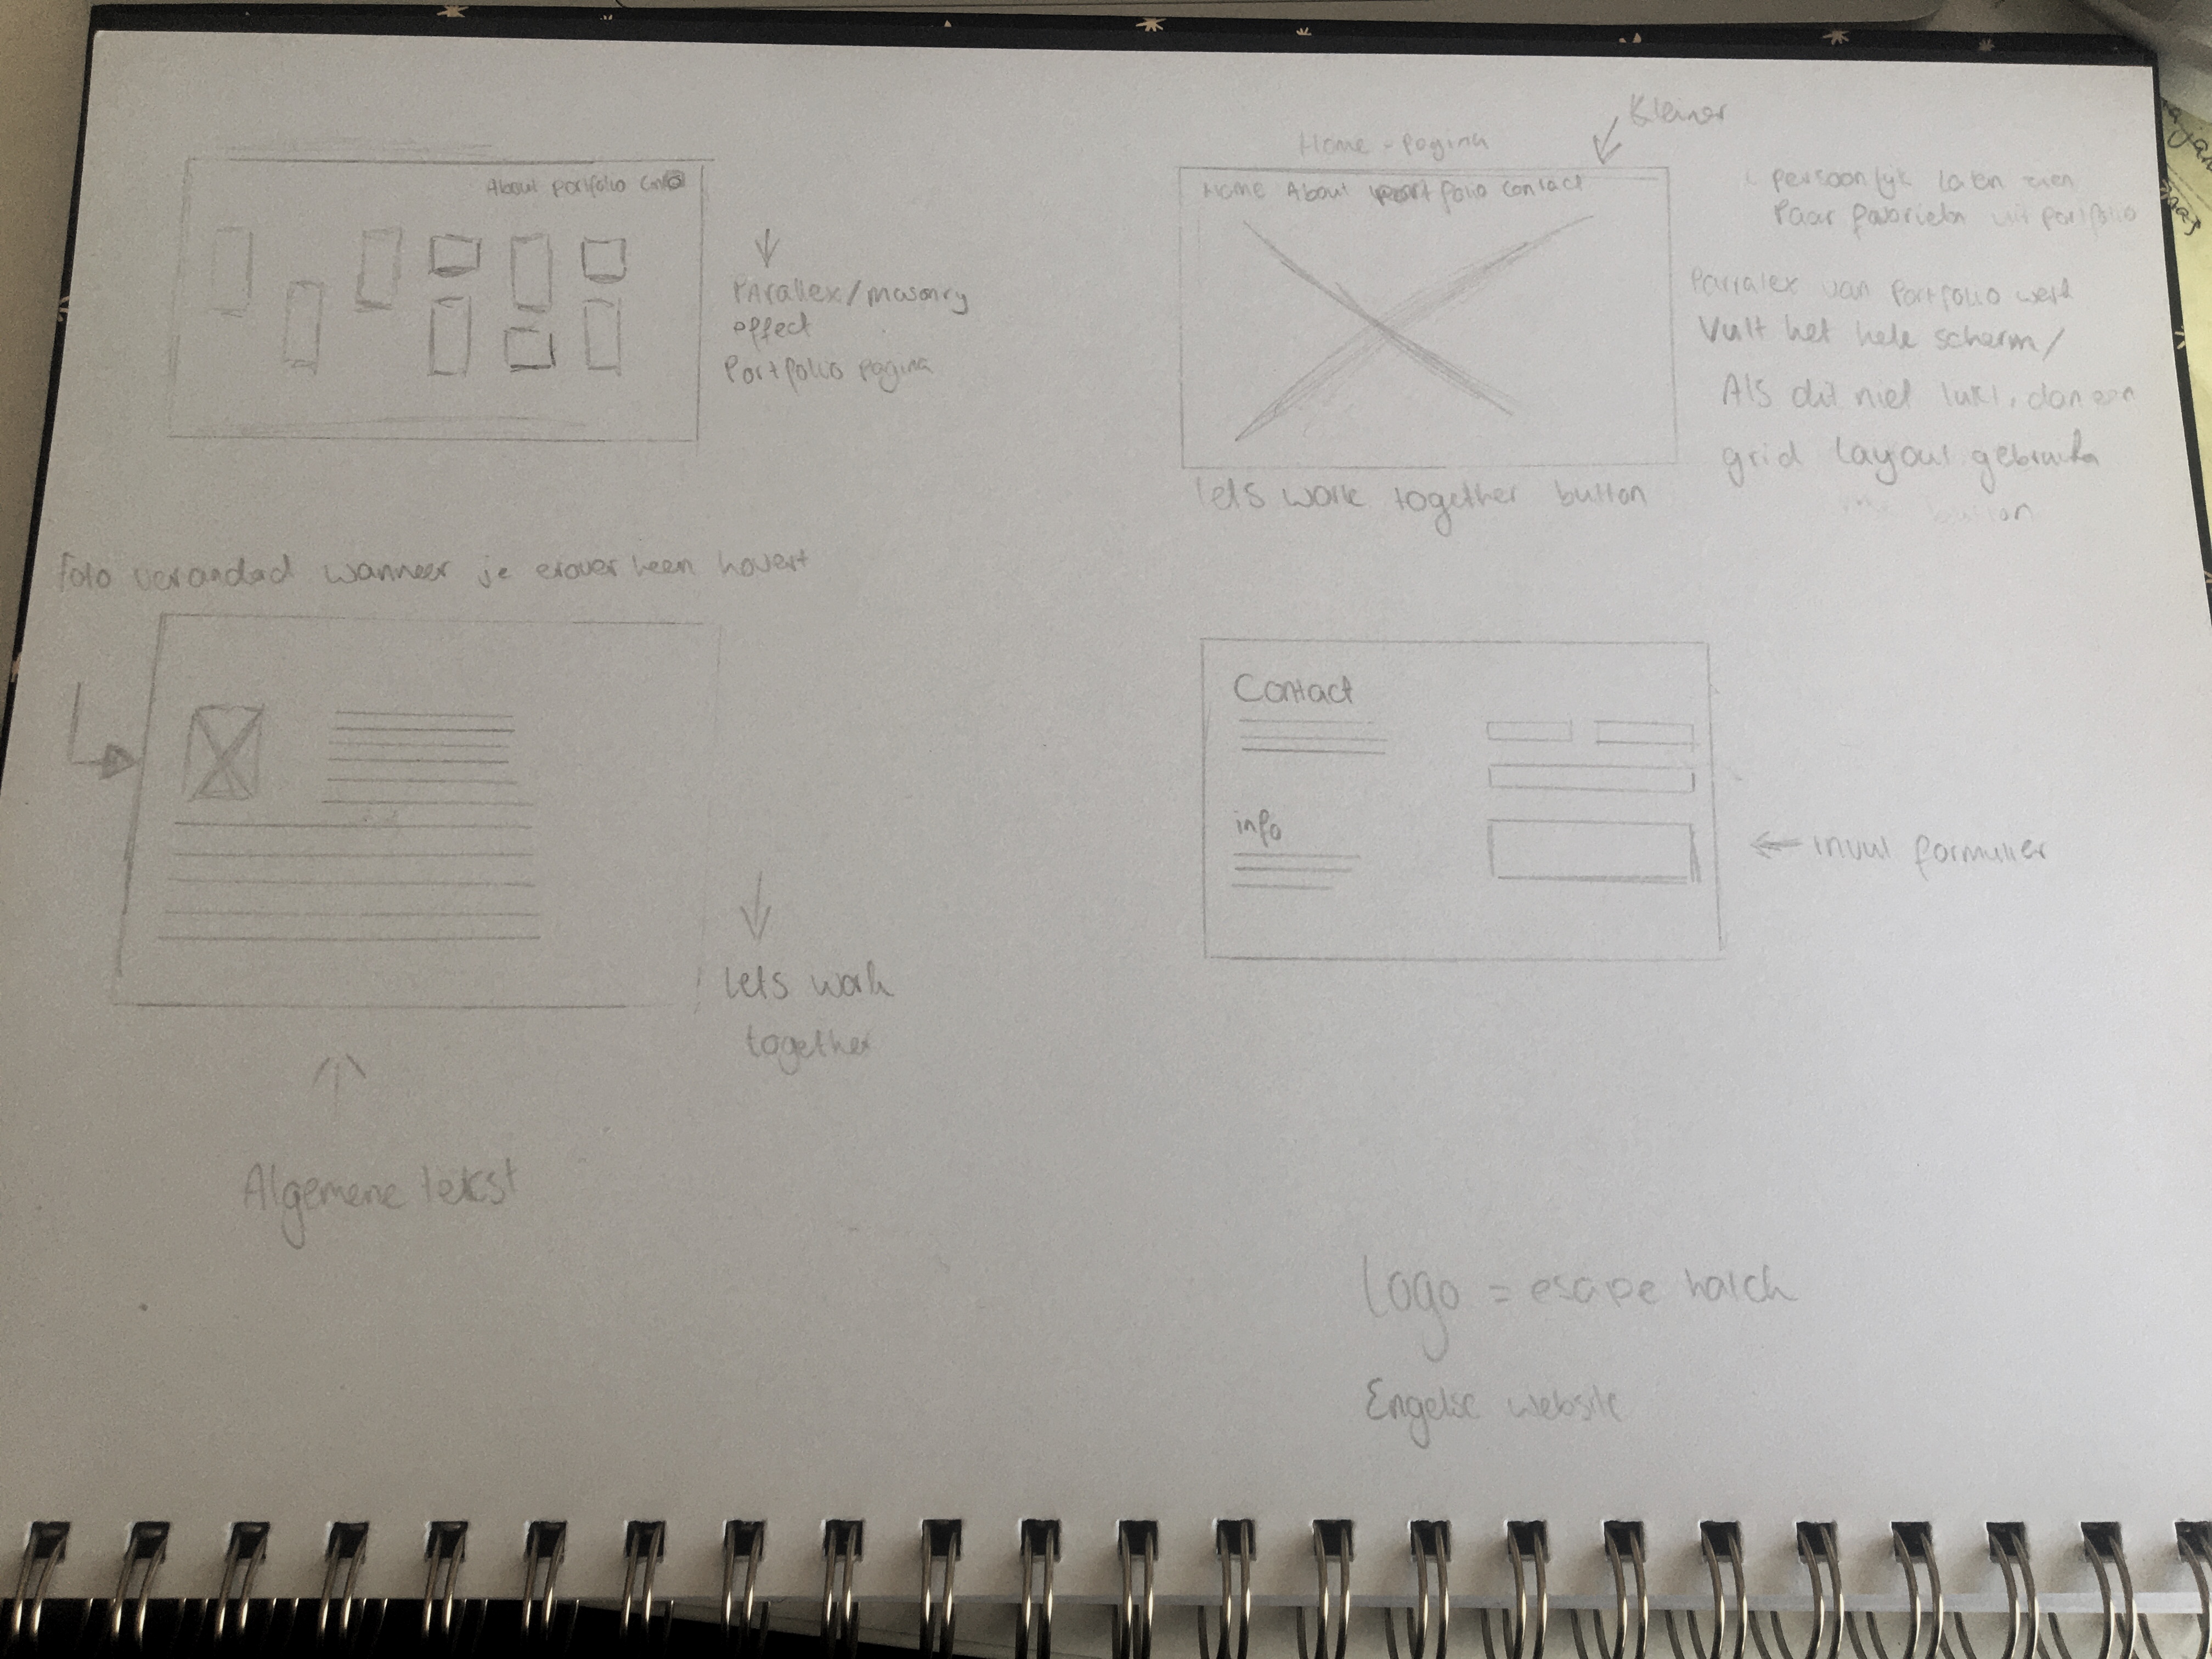 About Portfolio
PArallex/masonry
effect
Portfolio pagina
Home - pagina
Kleiner
Home About Portfolio Contact
persoonlyk laten zien
Paar favorieten uit portfolio
Parralex van Portfolio werk
Vult het hele scherm/
Als dit niet lukt, dan een
grid layout gebruiken
button
lets work together button
foto verandad wanneer je erover heen hovert
lets work
together
Algemene tekst
Contact
info
invul formulier
Logo = escape hatch
Engelse website